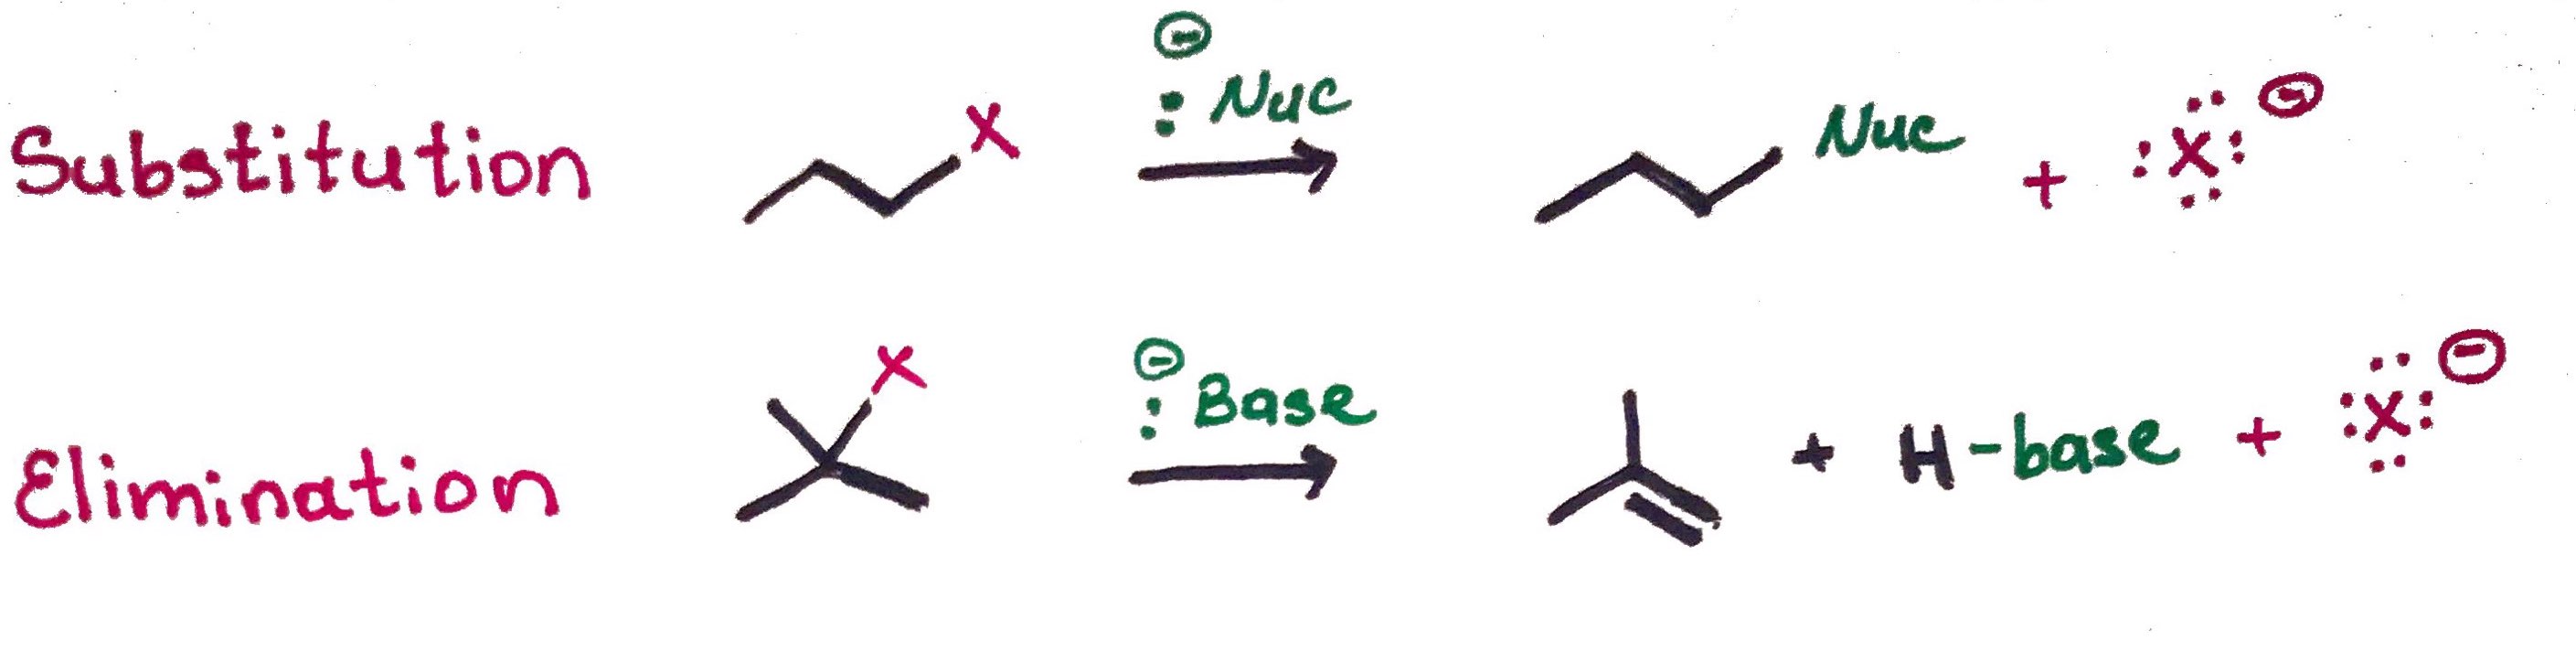 Substitution X ⊖ : Nuc Nuc + :X: ⊖
Elimination X ⊖ : Base + H-base + :X: ⊖